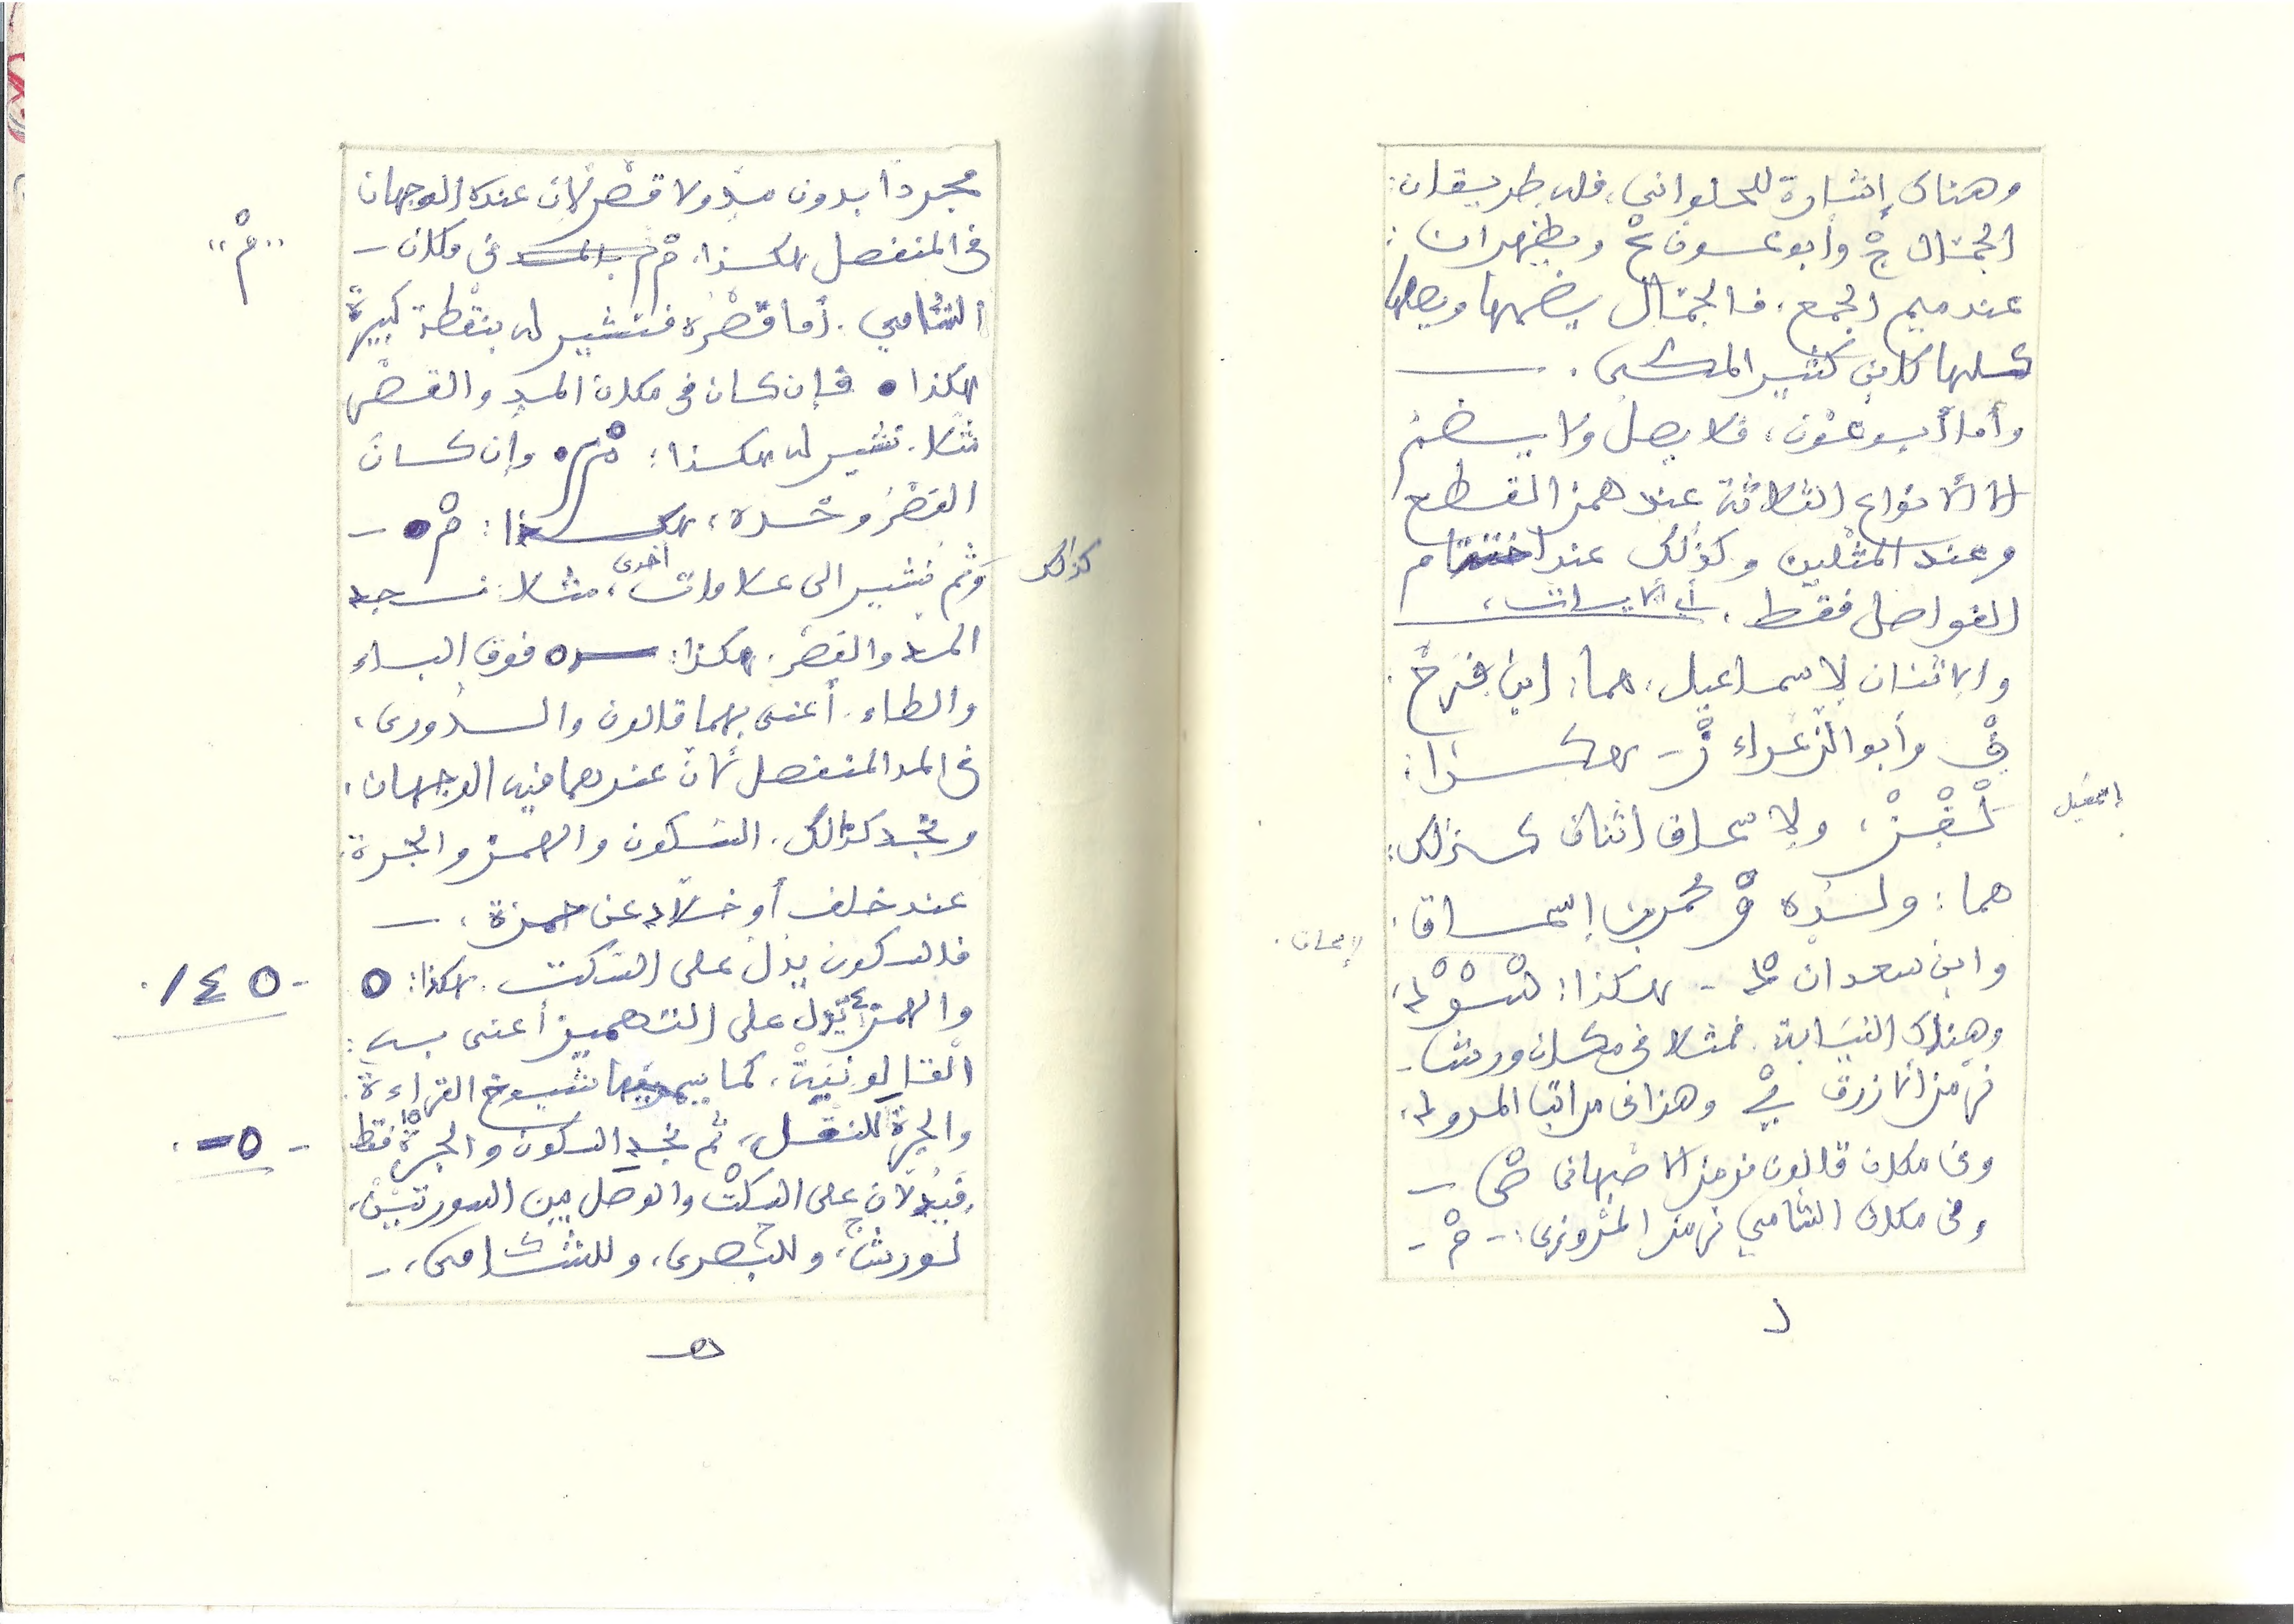 وهناك إشارة للحلواني، فله طريقان:
الجمّال جْ وأبو عون عْ ويظهران:
عند ميم الجمع، فالجمّال يضمها ويصلها
كلها كابن كثير المكي. —
وأما أبو عون، فلا يصل ولا يضم
إلا الأنواع الثلاثة عند همز القطع
وعند المثلين وكذلك عند اختتام
الفواصل فقط. أي الآيات،
والاثنان لإسماعيل، هما: ابن فرح
فْ وأبو الزعراء زْ - هكذا:
لْفْزْ، ولإسحاق اثنان كذلك:
إسمعيل
هما: ولده محمد بن إسحاق.
إسحاق.
وابن سعدان طْ - هكذا:
وهناك النيابة. فمثلا في مكان ورش -
نرمز الأزرق وهذا في مراتب المد وله،
وفي مكان قالون نرمز الأصبهاني صْ —
وفي مكان الشامي نرمز : - مْ -
د
مجردا بدون مد ولا قصر لأن عنده الوجهان
في المنفصل هكذا. مْ في مكان —
"مْ"
الشامي. أما قصره فنشير له بنقطة كبيرة
هكذا • فإن كان في مكان المد والقصر
مثلا. نشير له هكذا: وإن كان
القصر وحده، هكذا: مْ • —
وثم نشير الى علامات أخرى، مثلا: نجد
كذلك
المد والقصر. هكذا: فوق الباء
والطاء. أعني بهما قالون والدوري،
في المد المنفصل لأن عندهما فيه الوجهان.
ونجد كذلك. السكون والهمز والجرة.
عند خلف أو خلاد عن حمزة، —
فالسكون يدل على السكت. هكذا: ه
- ه ء / .
والهمز يدل على التسهيل أعني به:
كما شيوخ القراءة.
والجرة للنقل، ثم نجد السكون والجرة فقط
- ه - .
فيدلان على السكت والوصل بين السورتين،
لورش، وللبصري، وللشامي، -
هـ